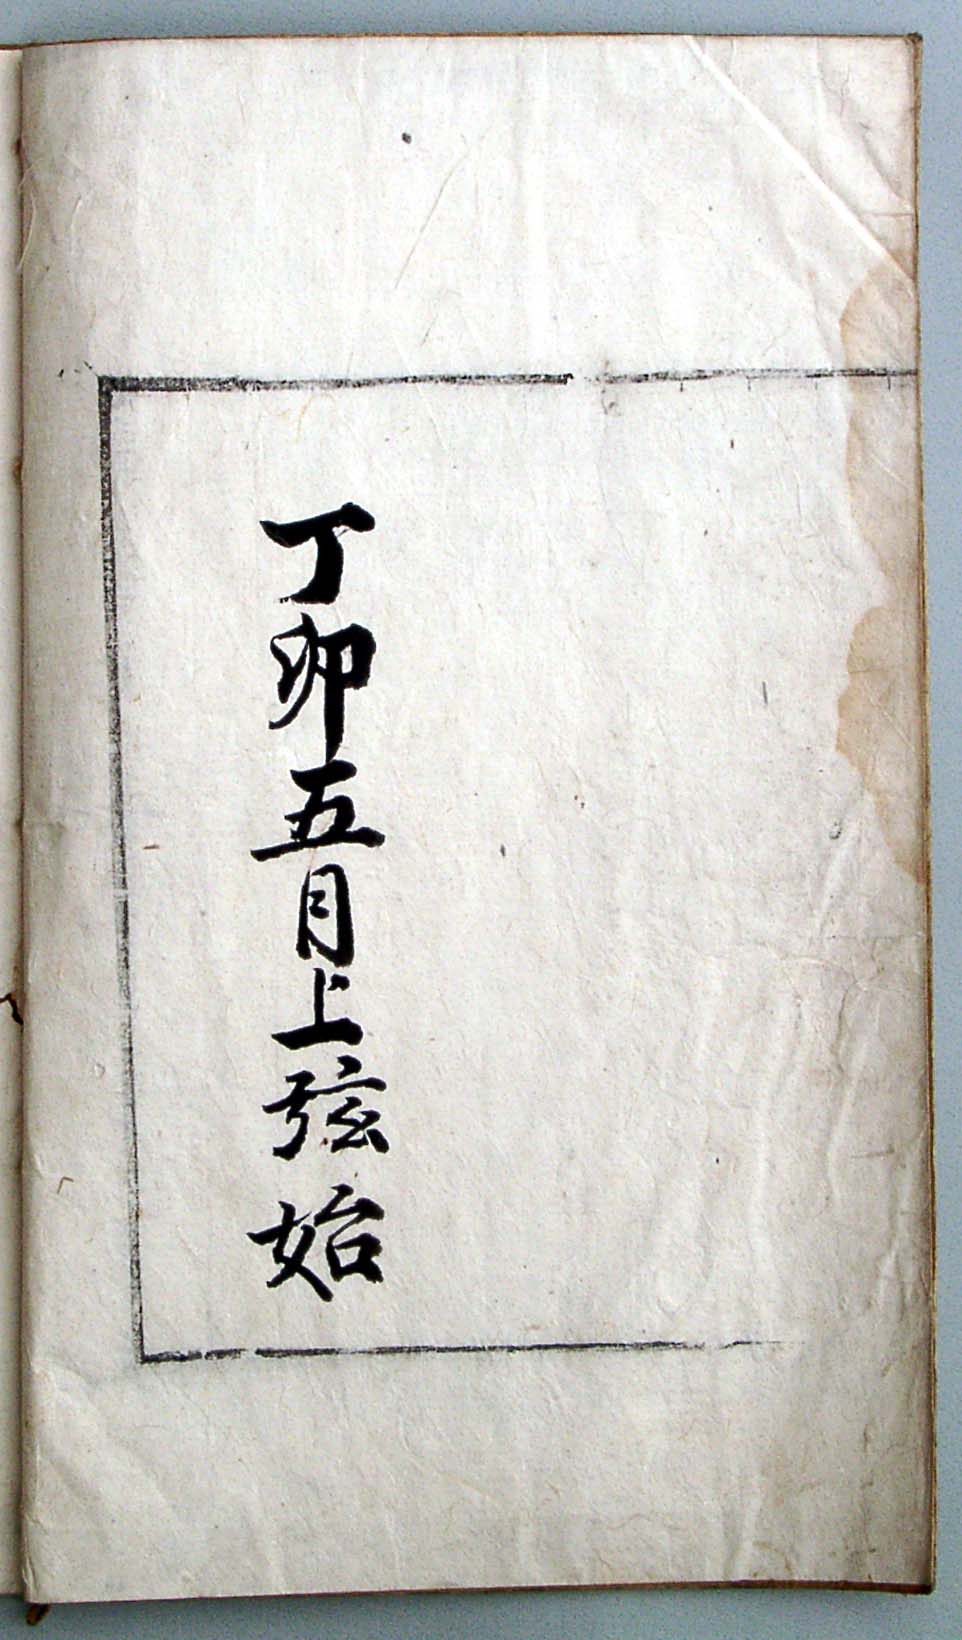 丁卯五月上弦始